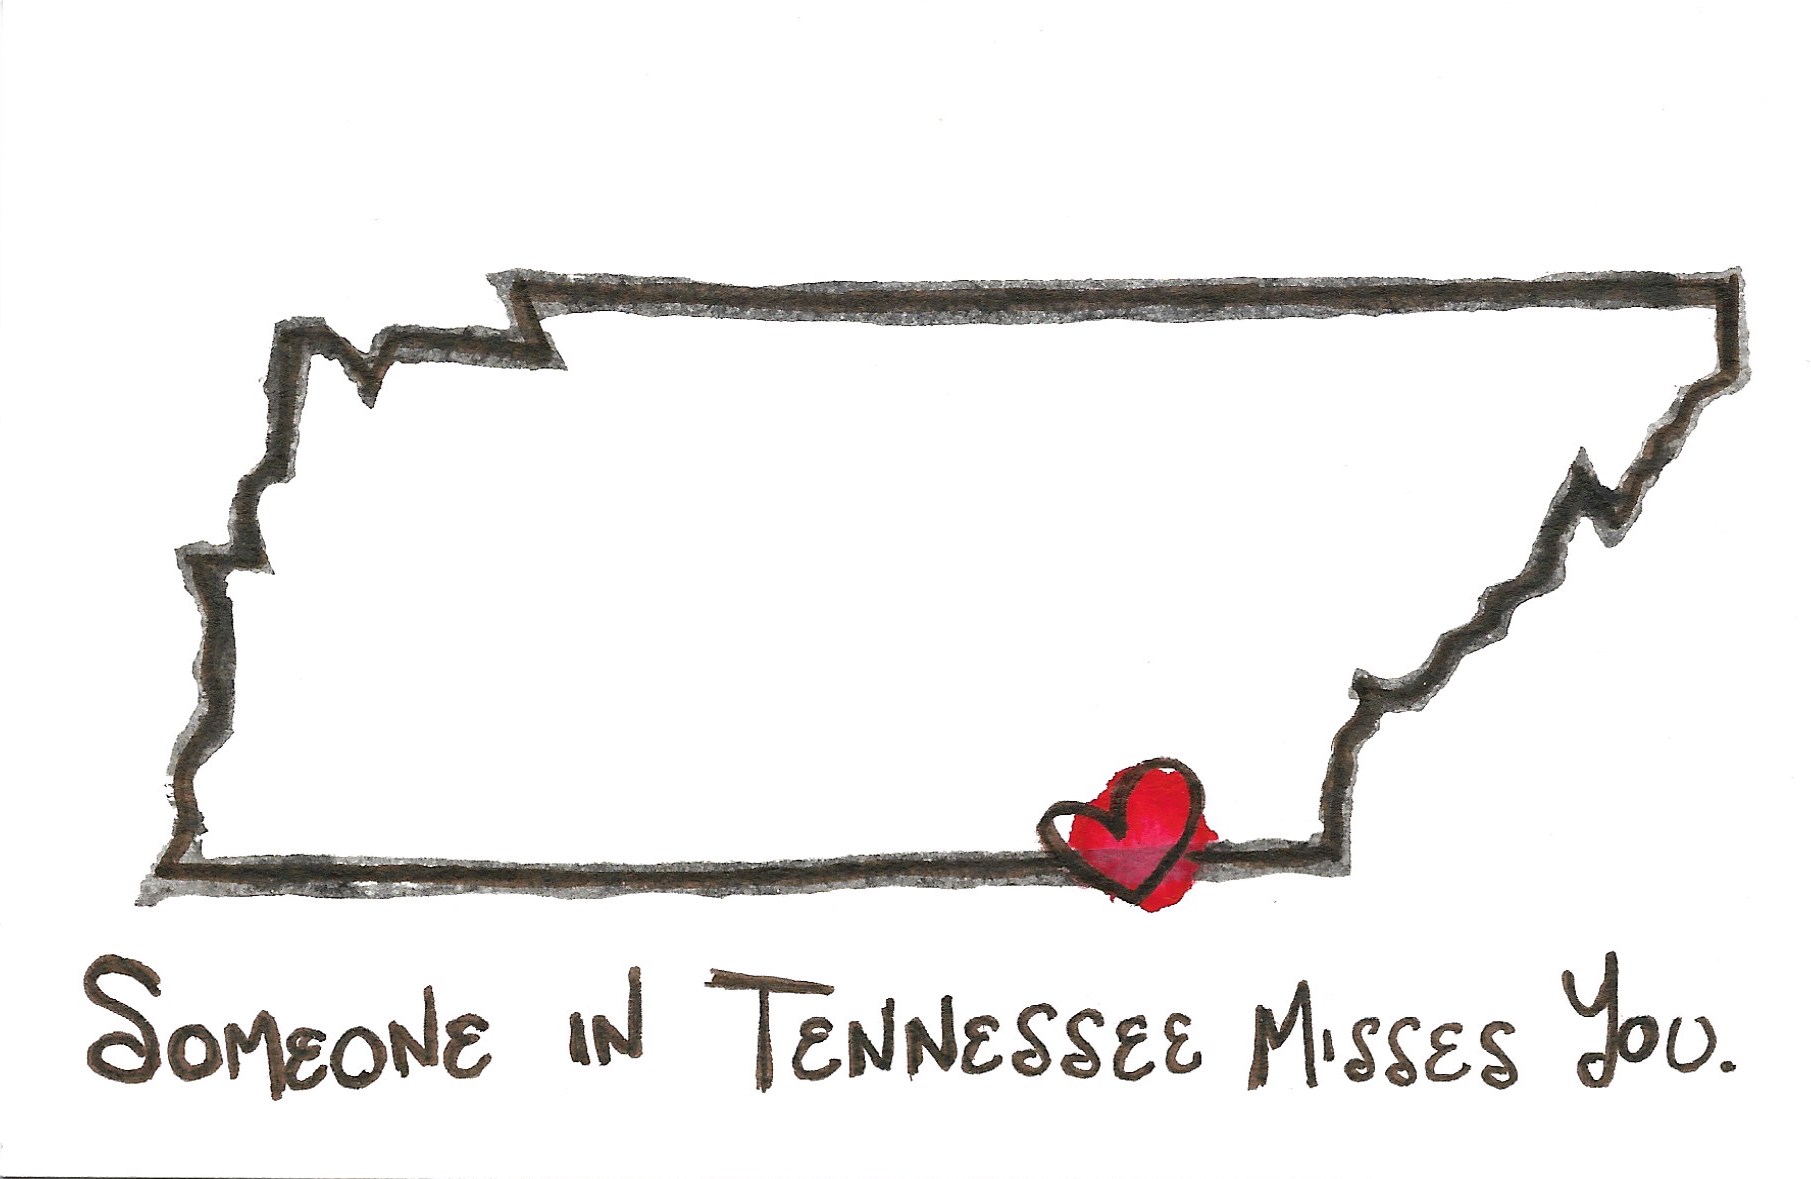 Someone in Tennessee Misses You.